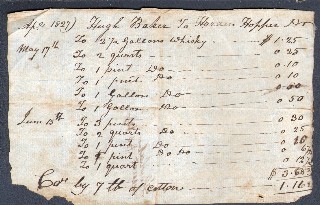 Apr 1827) Hugh Baker To Hopper Dr
To 2½ Gallons Whisky $1.25
May 17th To 2 quarts 0 25
To 1 pint Do 0.10
To 1 pint Do 0 10
To 1 Gallon Do 0 50
To 1 Gallon Do 0 50
June 13th To 3 pints 0 30
To 2 quarts Do 0 25
To 1 pint Do 0
To 1 pint Do Do 0
To 0 12
$3.68
Cr by 7 lb of cotton 1.16